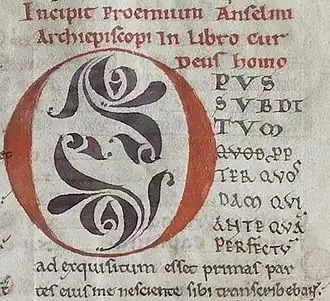 Incipit Proemium Anselmi
Archiepiscopi In Libro Cur
Deus homo
OPUS
SUBDI
TUM
QUOD, PP
TER QUOS
DAM QUI
ANTE QUĀ
PERFECTŪ
ad exquisitum esset primas par
tes eius me nesciente sibi transcribebant